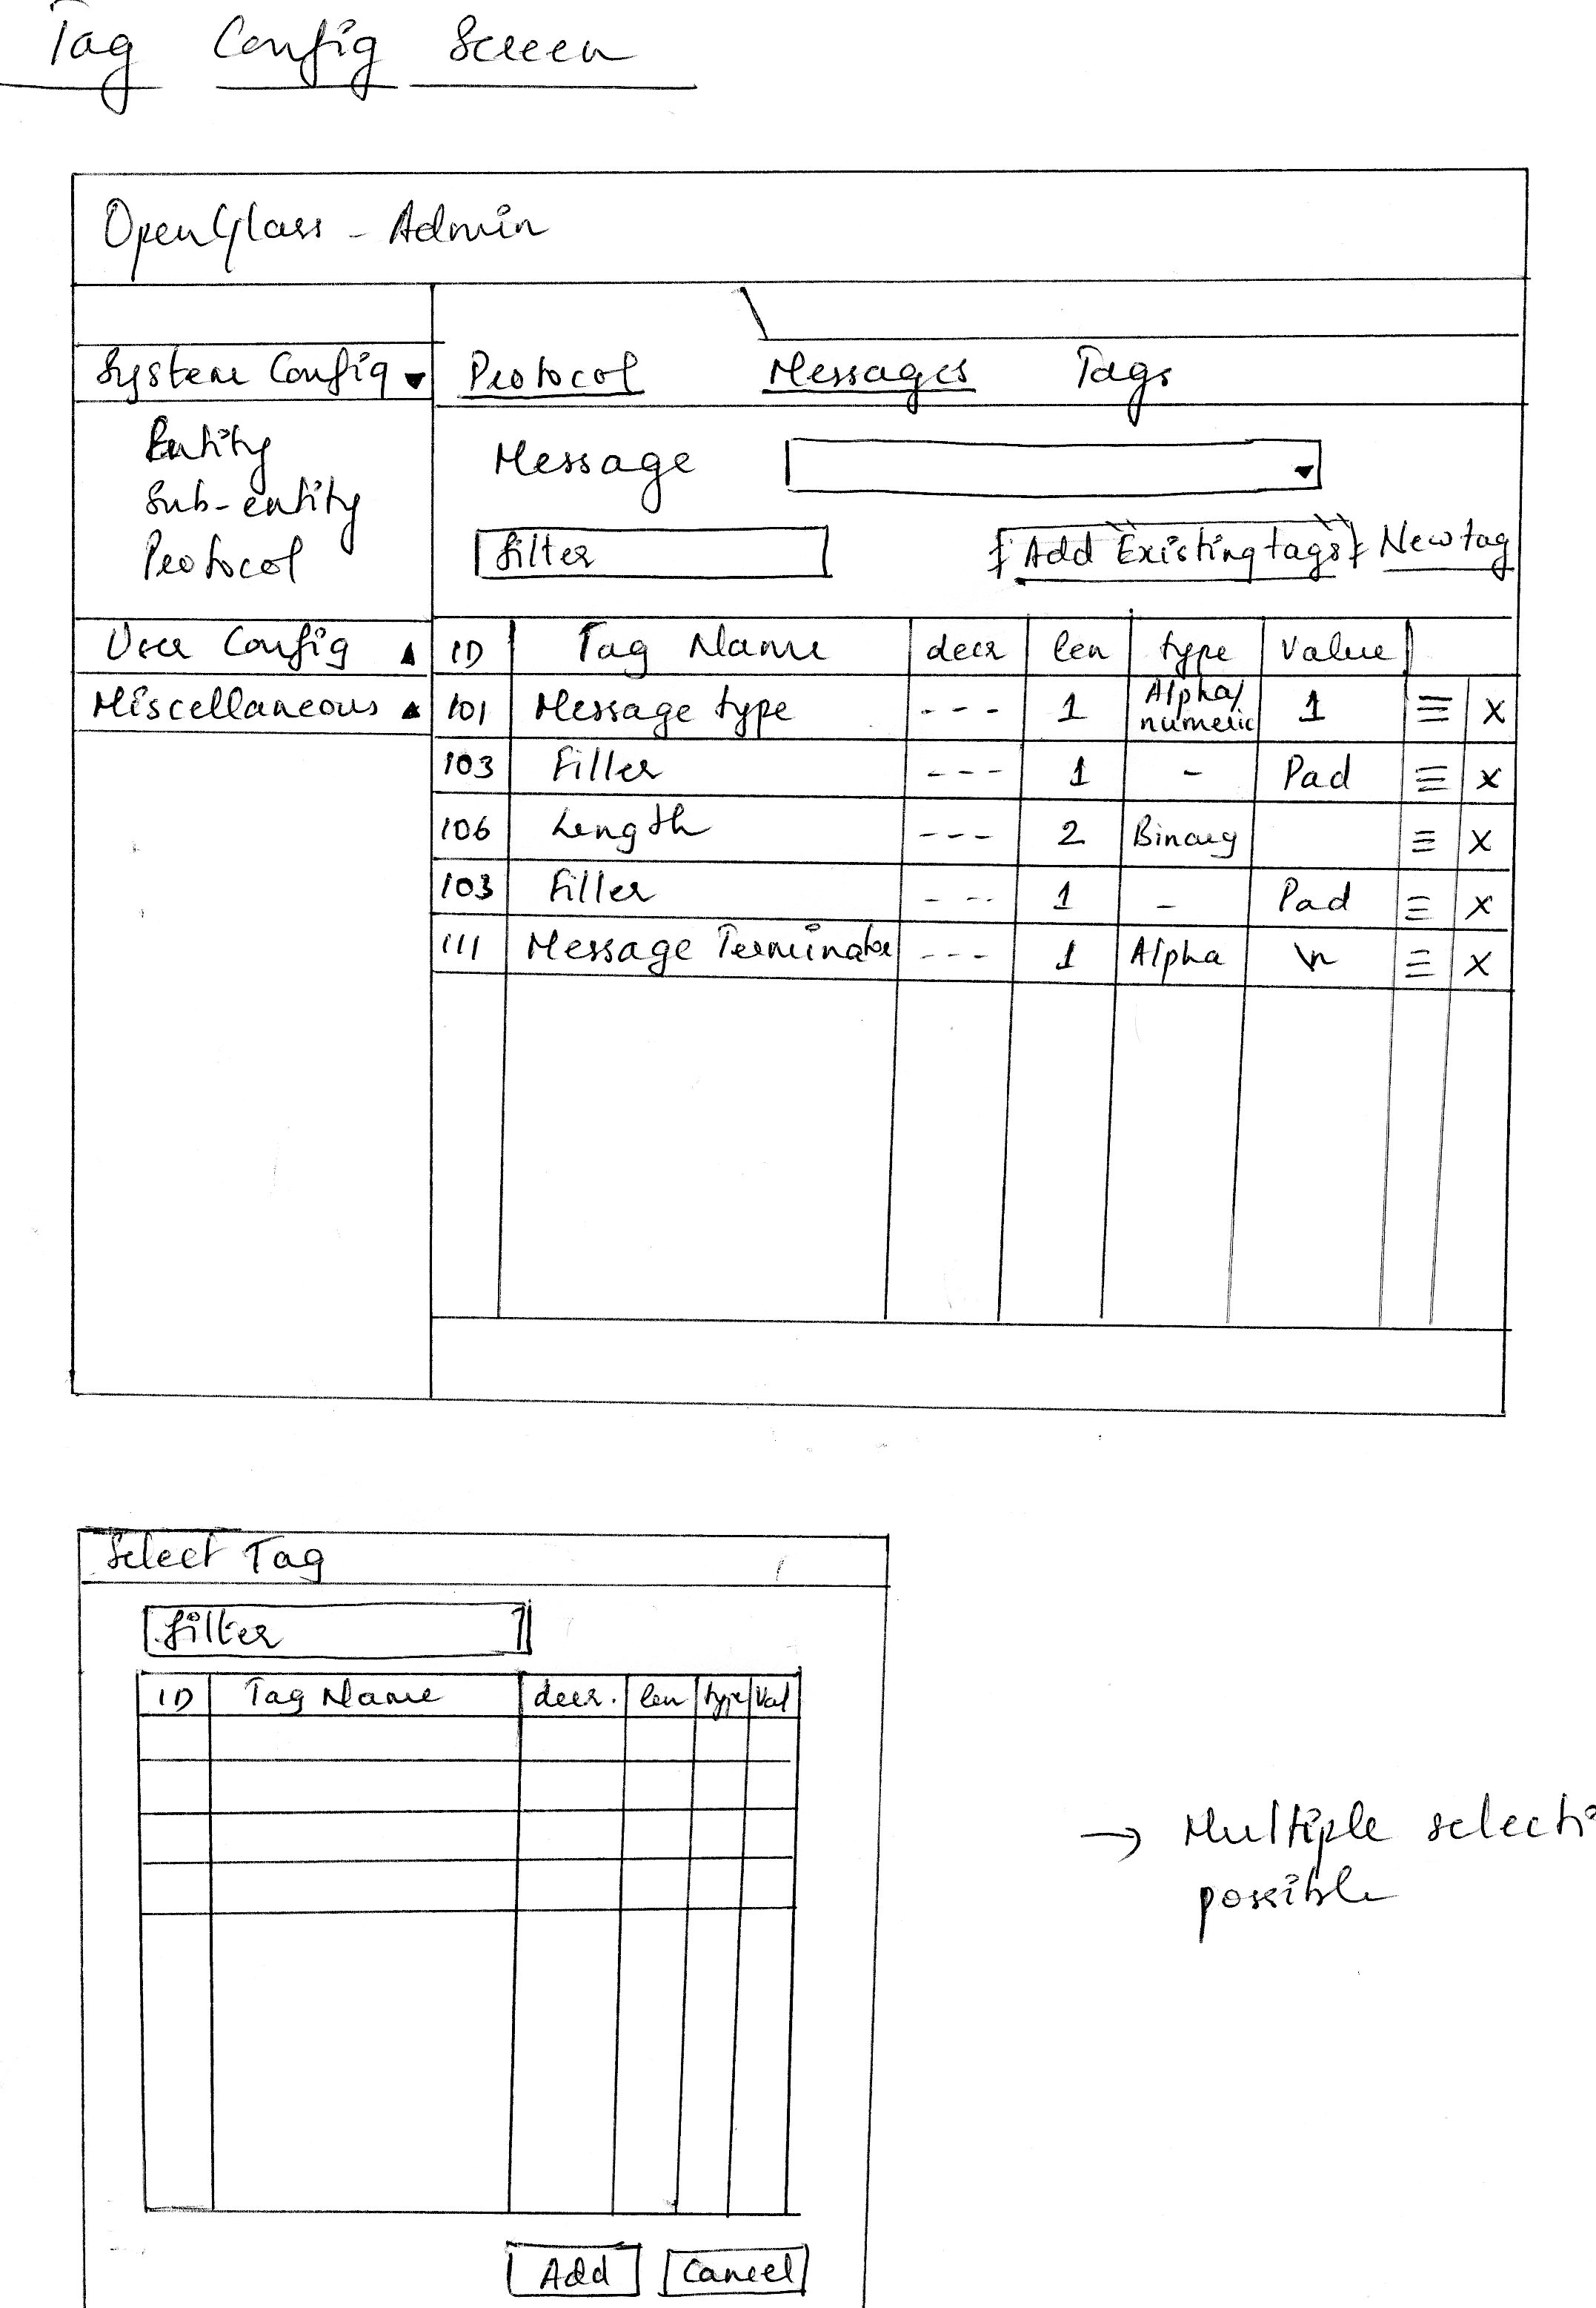 Tag Config Screen
OpenGlass - Admin
System Config
Entity
Sub-entity
Protocol
User Config
Miscellaneous
Protocol Messages Tags
Message
filter Add Existing tags New tag
ID Tag Name decr len type Value
101 Message type --- 1 Alpha/numeric 1 X
103 Filler --- 1 - Pad X
106 Length --- 2 Binary X
103 Filler --- 1 - Pad X
111 Message Terminator --- 1 Alpha \n X
Select Tag
filter
ID Tag Name decr. len type Val
Add Cancel
→ Multiple selecti
possible